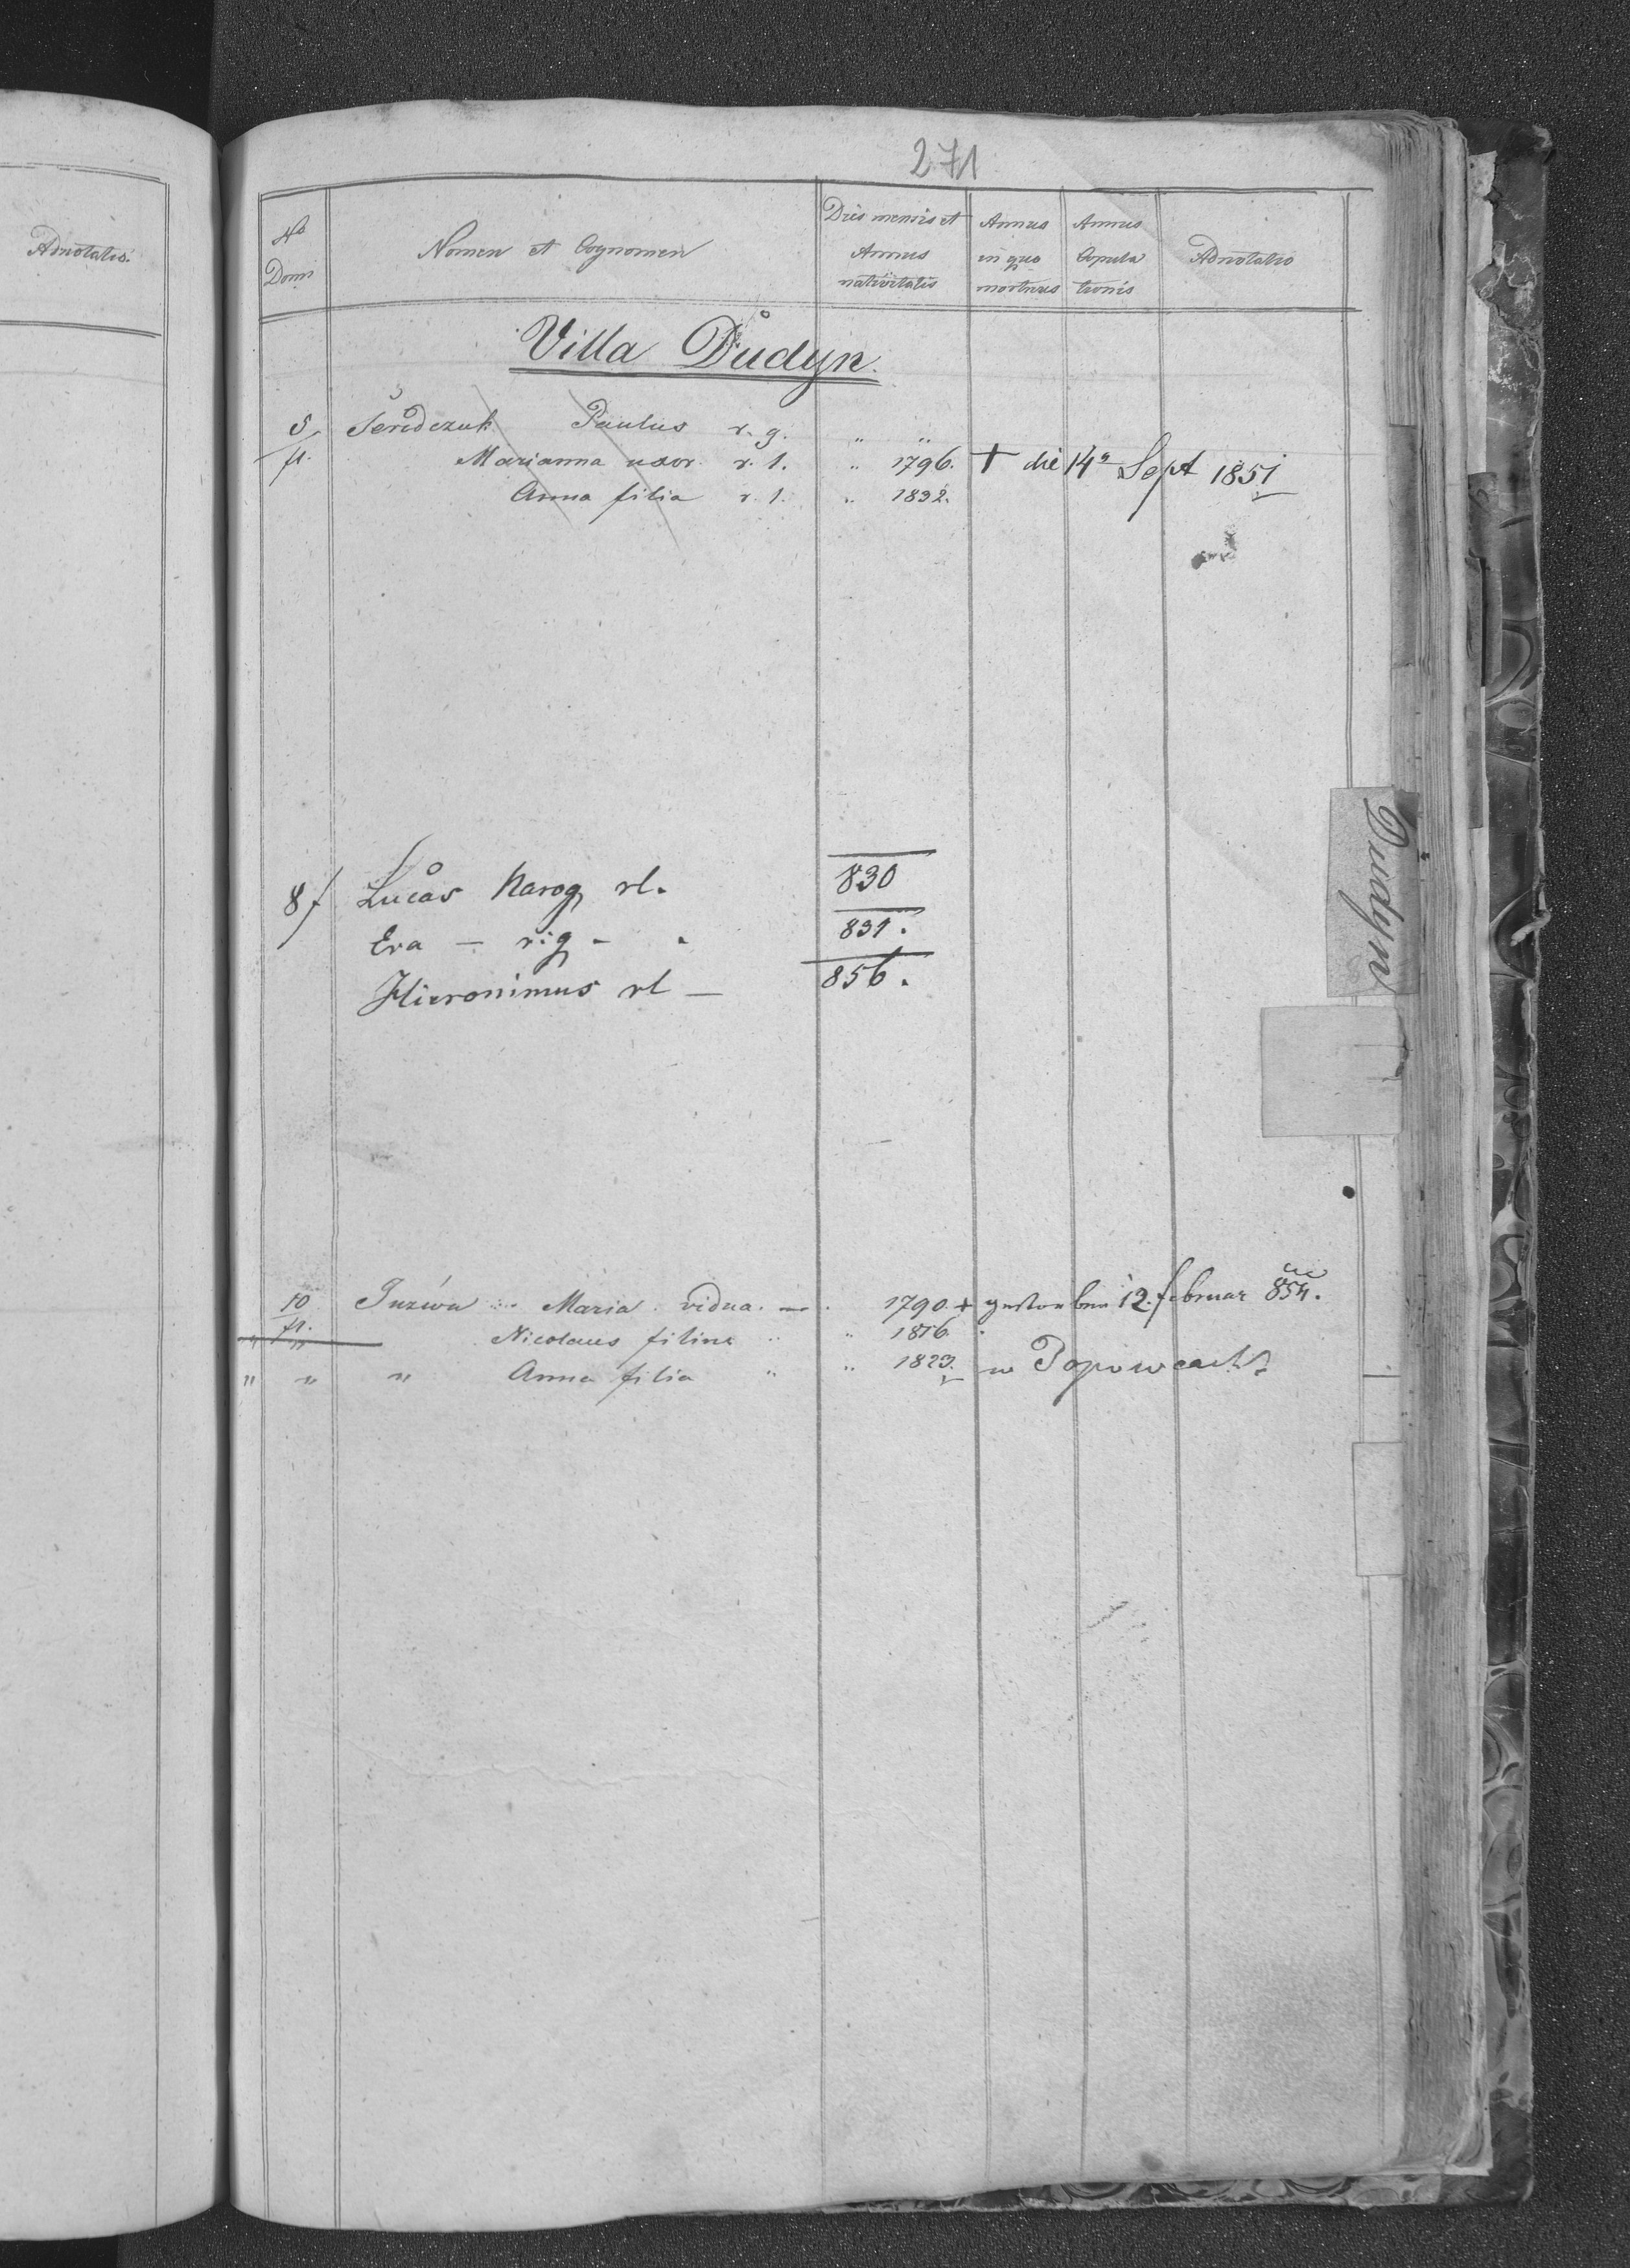 Adnotatio.
271
No Domi
Nomen et Cognomen
Dies mensis et Annus nativitatis
Annus in quo mortuus
Annus Copula tionis
Adnotatio
Villa Dudyn.
5 Seredczuk Paulus r. g. " "
f1. Marianna uxor r. l. " 1796. + die 14a Sept 1851
Anna filia r. l. " 1832.
8/ Lucas Narog rl. 830
Eva — rig - 831.
Hieronimus rl — 856.
10 Maria vidua. — 1790. + gestorben 12. februar 854.
f1.
" " Nicolaus filius " " 1816.
" " " Anna filia " " 1823. w Popowcach
Dudyn